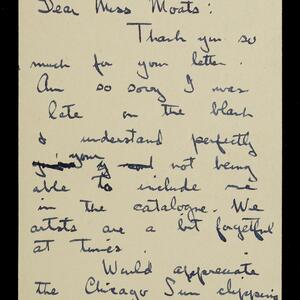 Dear Miss Moats:
Thank you so
much for your letter.
Am so sorry I was
late on the blank
& understand perfectly
your not being
able to include me
in the catalogue. We
artists are a bit forgetful
at times.
Would appreciate
the Chicago Sun clipping